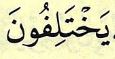 يَخْتَلِفُونَ